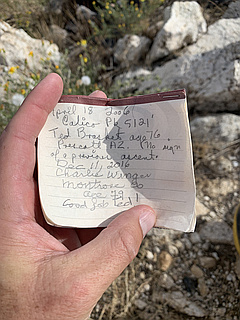 April 18 2006
Calico Pk 5121'
Ted Brasket age 16
Prescott AZ. No sign
of a previous ascent.
Dec 11, 2016
Charlie Winger
Montrose Co
age 79
Good Job Ted!